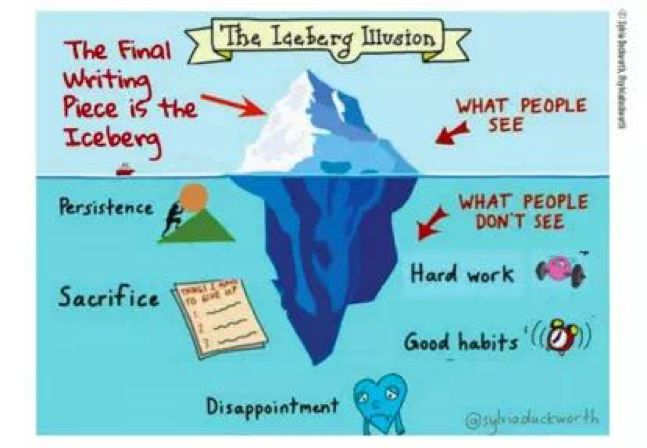 The Iceberg Illusion
The Final
Writing
Piece is the
Iceberg
WHAT PEOPLE
SEE
WHAT PEOPLE
DON'T SEE
Persistence
Hard work
Sacrifice
THINGS I HAVE
TO GIVE UP
1.
2.
3.
Good habits
Disappointment
@sylviaduckworth